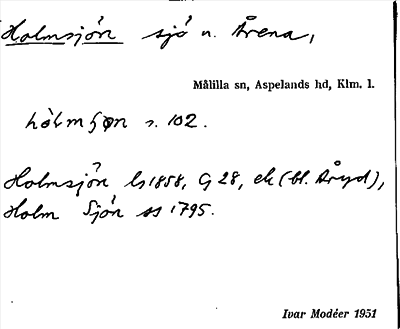 Holmsjön sjö n. Årena,
Målilla sn, Aspelands hd, Klm. l.
hòlmʃøn s. 102.
Holmsjön ls 1858, G 28, ek (bl. Åryd),
Holm Sjön ss 1795.
Ivar Modéer 1951